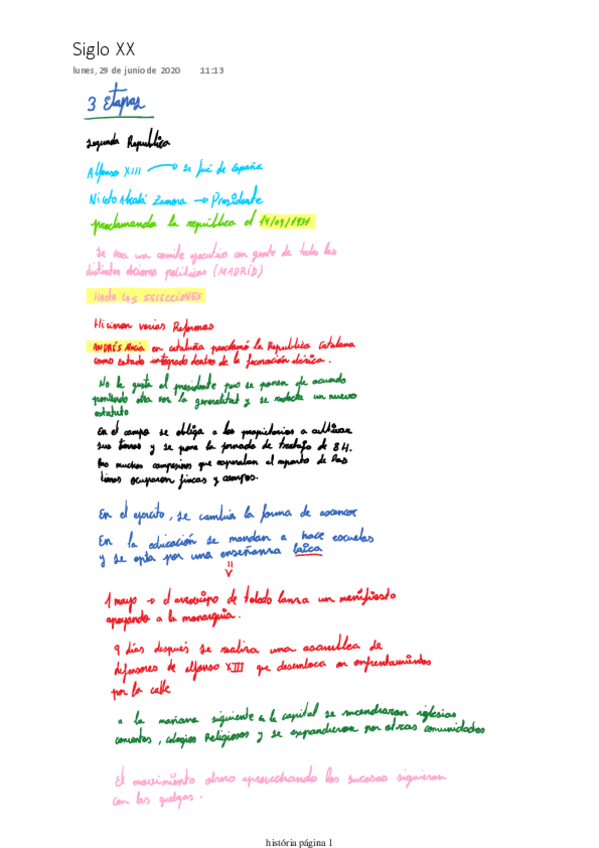 Siglo XX
lunes, 29 de junio de 2020 11:13
3 Etapas
Segunda Republica
Alfonso XIII → se fué de España
Niceto Alcalá Zamora → Presidente
proclamando la república el 14/04/1931
Se crea un comite ejecutivo con gente de todas las
distintas politicas (MADRID)
HASTA LAS
Hicieron varias Reformas
ANDRÉS Macia en cataluña proclamó la Republica Catalana
como estado integrado dentro de la
No le gusta al presidente pero se ponen de acuerdo
poniendo otra vez la generalitat y se redacta un nuevo
estatuto
En el campo se obliga a los propietarios a cultivar
sus tierras y se pone la jornada de trabajo de 8 H.
muchos campesinos que esperaban el reparto de las
tierras ocuparon fincas y campos.
En el ejercito, se cambia la forma de ascenso
En la educación se mandan a hace escuelas
y se opta por una enseñanza laica
1 mayo → el arzobispo de toledo lanza un manifiesto
apoyando a la monarquia.
9 dias después se realiza una asamblea de
defensores de alfonso XIII que desemboca en enfrentamientos
por la calle
a la mañana siguiente en la capital se incendiaron iglesias
conventos, colegios Religiosos y se expandieron por otras comunidades
El movimiento obrero aprovechando los sucesos siguieron
con las huelgas.
história página 1